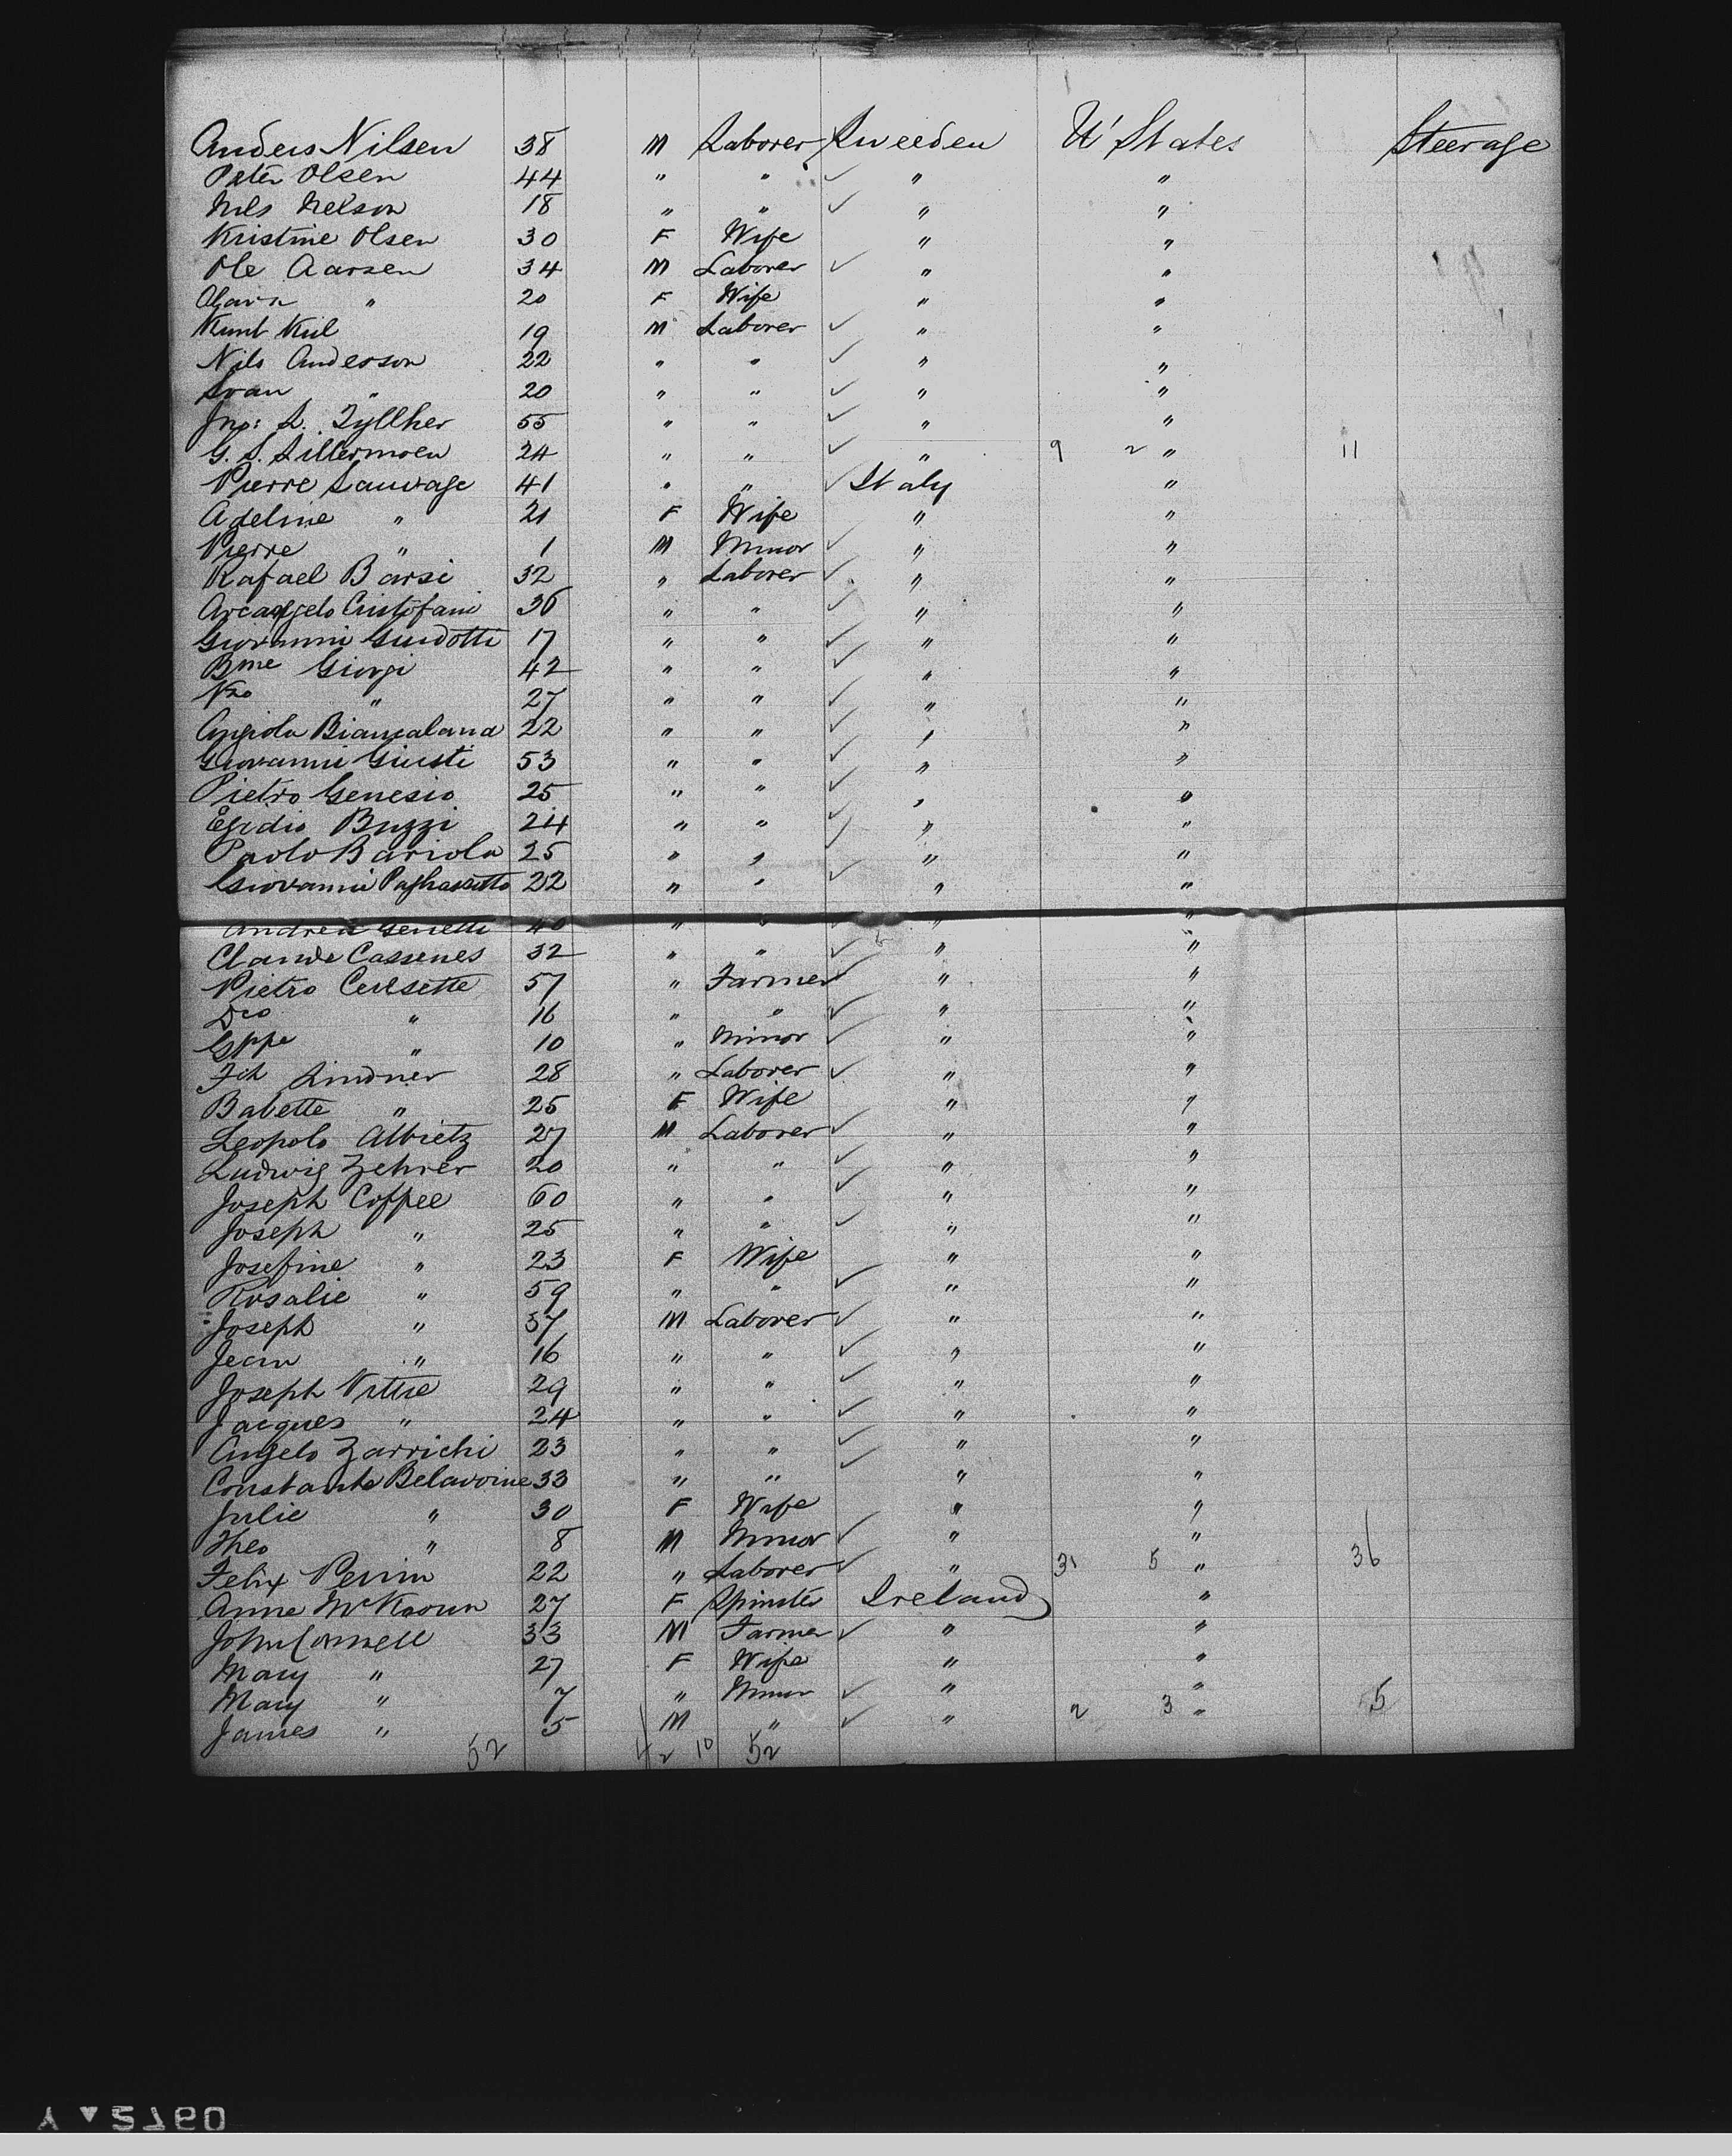 Anders Nilsen 38 M Laborer Sweeden U' States Steerage
Peter Olsen 44 " " ✓ " "
Nils Nelson 18 " " ✓ " "
Kristine Olsen 30 F Wife " "
Ole Aarsen 34 M Laborer ✓ " "
" 20 F Wife " "
Kunt 19 M Laborer ✓ " "
Nils Anderson 22 " " ✓ " "
Svan " 20 " " ✓ " "
Jno: L. Zyllher 55 " " ✓ " "
G. S. Sillermoen 24 " " ✓ " 9 2 " 11
Pierre Sauvage 41 " " ✓ Italy "
Adeline " 21 F Wife " "
Pierre " 1 M Minor ✓ " "
Rafael Barsi 32 " Laborer ✓ " "
Arcangelo Cristofani 36 " " ✓ " "
Giovanni Guidotti 17 " " ✓ " "
Bme Giorgi 42 " " ✓ " "
" 27 " " ✓ " "
Angiola Biancalana 22 " " ✓ " "
Giovanni Giusti 53 " " ✓ " "
Pietro Genesio 25 " " ✓ " "
Egidio Buzzi 24 " " ✓ " "
Paolo Bariola 25 " " ✓ " "
Giovanni Paghasetto 22 " " ✓ " "
Andrea Genetti 40 " " ✓ " "
Claude Cassenes 32 " " ✓ " "
Pietro Ceresette 57 " Farmer ✓ " "
Dco " 16 " " ✓ " "
Gppe " 10 " Minor ✓ " "
Fch Lindner 28 " Laborer ✓ " "
Babette " 25 F Wife " "
Leopold Albietz 27 M Laborer ✓ " "
Ludwig Zehrer 20 " " ✓ " "
Joseph Coffee 60 " " ✓ " "
Joseph " 25 " " ✓ " "
Josefine " 23 F Wife " "
Rosalie " 59 " " ✓ " "
Joseph " 37 M Laborer ✓ " "
Jean " 16 " " ✓ " "
Joseph Vittie 29 " " ✓ " "
Jacques " 24 " " ✓ " "
Angelo Zarrichi 23 " " ✓ " "
Constante Belavoine 33 " " ✓ " "
Julie " 30 F Wife " "
Theo " 8 M Minor ✓ " "
Felix Perrin 22 " Laborer ✓ " 31 5 " 36
Anne McKeown 27 F Spinster Ireland "
John Connell 33 M Farmer ✓ " "
Mary " 27 F Wife " "
Mary " 7 " Minor ✓ " "
James " 5 M " ✓ " 2 3 " 5
52 42 10 52